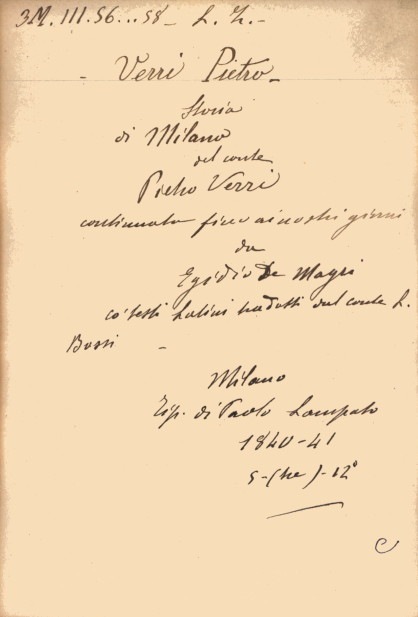 3M. III. 56...58 - L. Z. -
- Verri Pietro -
Storia
di Milano
del conte
Pietro Verri
continuata fino ai nostri giorni
da
Egidio De Magri
co' testi Latini tradotti dal conte L.
Bossi -
Milano
Tip. di Paolo Lampato
1840-41
5-(tre)-12°
C